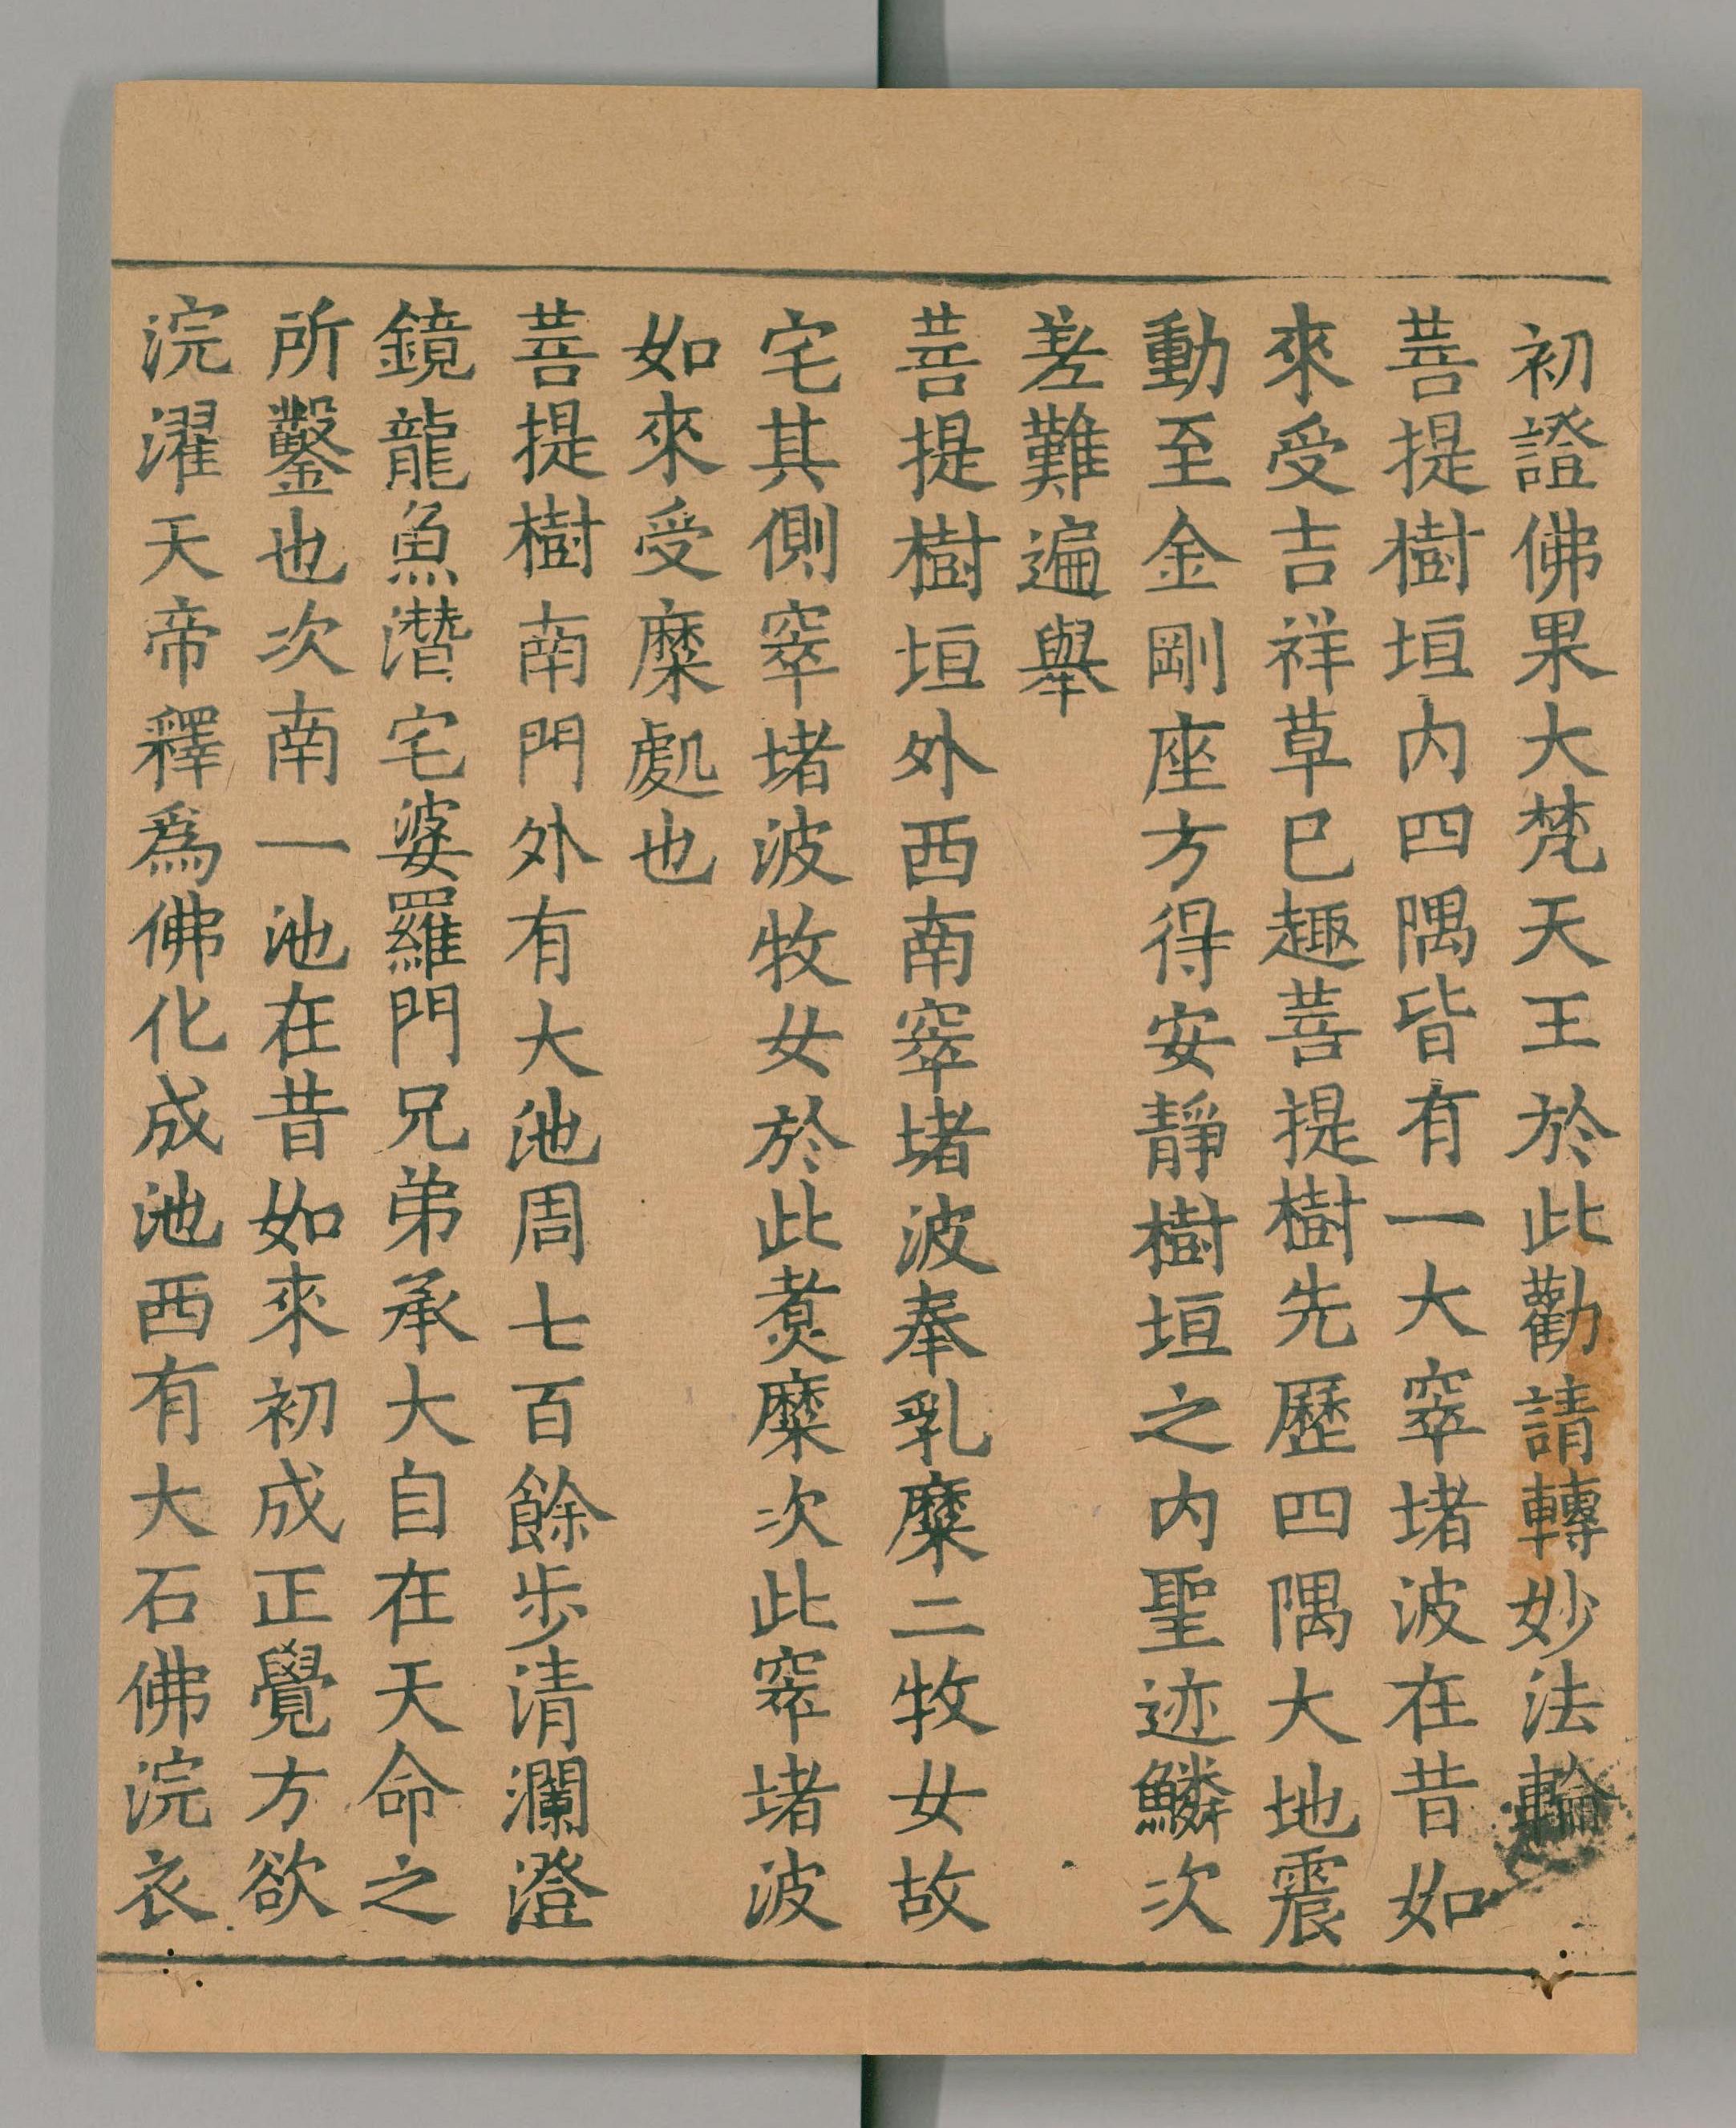 初證佛果大梵天王於此勸請轉妙法輪
菩提樹垣内四隅皆有一大窣堵波在昔如
來受吉祥草巳趣菩提樹先歷四隅大地震
動至金剛座方得安靜樹垣之内聖迹鱗次
差難遍舉
菩提樹垣外西南窣堵波奉乳糜二牧女故
宅其側窣堵波牧女於此煑糜次此窣堵波
如來受糜處也
菩提樹南門外有大池周七百餘步清瀾澄
鏡龍魚潛宅婆羅門兄弟承大自在天命之
所鑿也次南一池在昔如來初成正覺方欲
浣濯天帝釋爲佛化成池西有大石佛浣衣